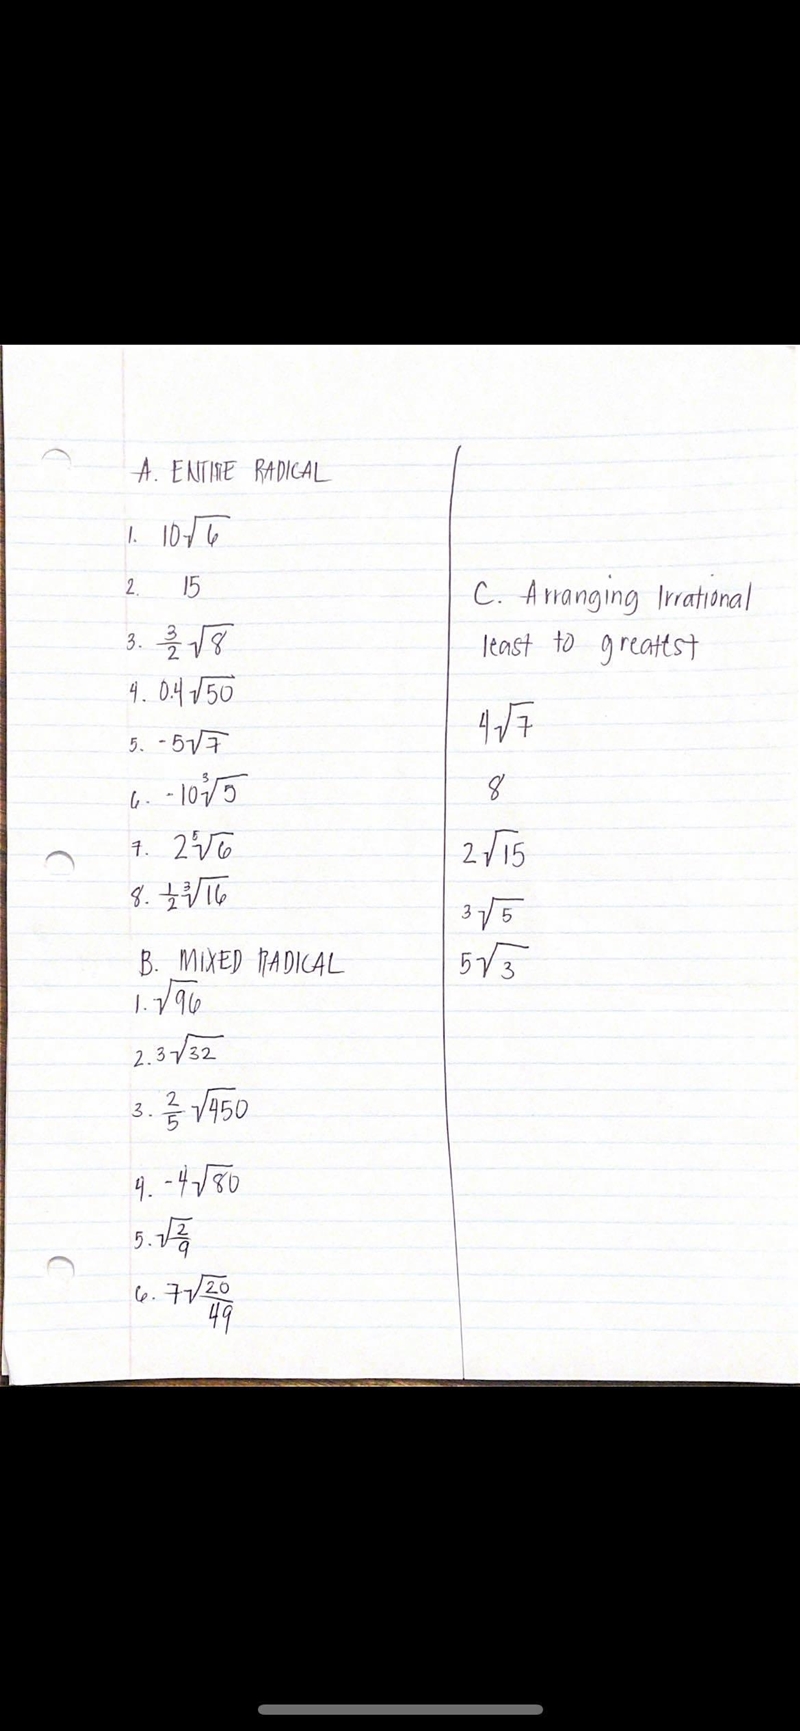 A. ENTIRE RADICAL
1. 10√6
2. 15
3. 3/2 √8
4. 0.4√50
5. -5√7
6. -10∛5
7. 2⁵√6
8. 1/2 ³√16
B. MIXED RADICAL
1. √96
2. 3√32
3. 2/5 √450
4. -4√80
5. √2/9
6. 7√20/49
C. Arranging Irrational
least to greatest
4√7
8
2√15
3√5
5√3